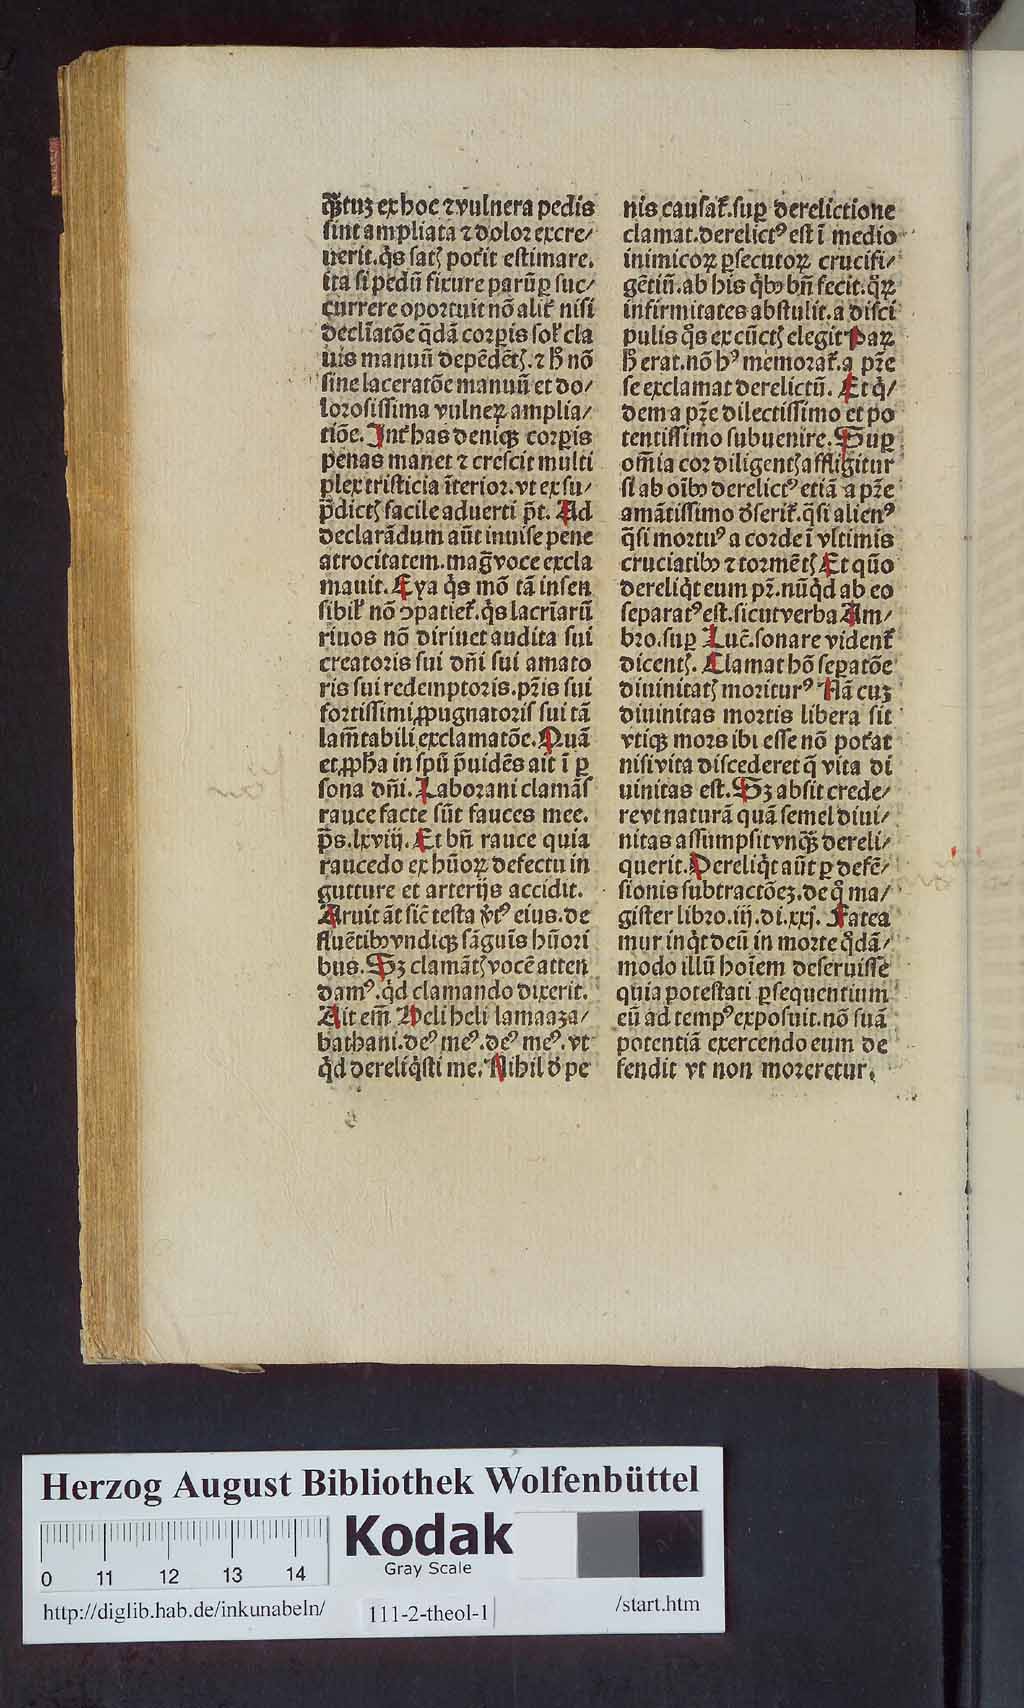 q̃ꝫtuꝫ ex hoc ⁊ vulnera pedis
sint ampliata ⁊ dolor excre/
uerit. q̇s satꝭ pot̉it estimare.
ita si pedū fixure parūꝑ suc/
currere oportuit nō alit̉ nisi
declīatōe q̄dā corꝑis sol̉ cla
uis manuū depēdētꝭ. ⁊ h̄ nō
sine laceratōe manuū et do/
lorosissima vulneꝝ amplia/
tiōe. Int̉ has deniqꝫ corꝑis
penas manet ⁊ crescit multi
plex tristicia īterior. vt ex su/
p̄dictꝭ facile aduerti p̄t. Ad
declarādum aūt inuise pene
atrocitatem. mag̅ voce excla
mauit. Eya q̇s mō tā insen
sibil̉ nō ꝯpatiet̉. q̇s lacrīarū
riuos nō diriuet audita sui
creatoris sui dn̄i sui amato
ris sui redemptoris. pr̄is sui
fortissimi ꝓpugnatoris sui tā
lam̄tabili exclamatōe. Quā
et ꝓph̄a in spū p̄uidēs ait ī ꝑ
sona dn̄i. Laboraui clamās
rauce facte sūt fauces mee.
p̄s. lxviij. Et bn̄ rauce quia
raucedo ex hūoꝝ defectu in
gutture et arterijs accidit.
Aruit āt sic̄ testa v̉tꝰ eius. de
fluētibꝫ vndiqꝫ sāguīs hūori
bus. Sꝫ clamātꝭ vocē atten
damꝰ. q̇d clamando dixerit.
Ait em̄ Heli heli lamaaza/
bathani. deꝰ meꝰ. deꝰ meꝰ. vt
q̇d dereliq̇sti me. Nihil d̓ pe
nis causat̉. suꝑ derelictione
clamat. derelictꝰ est ī medio
inimicoꝝ ꝑsecutoꝝ crucifi/
gētiū. ab his q̇bꝫ bn̄ fecit. q̊ꝝ
infirmitates abstulit. a disci
pulis q̊s ex cūctꝭ elegit Paꝝ
h̄ erat. nō hꝰ memorat̉. a pr̄e
se exclamat derelictū. Et q̇/
dem a pr̄e dilectissimo et po
tentissimo subuenire. Suꝑ
om̄ia cor diligentꝭ affligitur
si ab oībꝫ derelictꝰ etiā a pr̄e
amātissimo d̓serit̉. q̄si alienꝰ
q̄si mortuꝰ a corde ī vltimis
cruciatibꝫ ⁊ tormētꝭ Et quō
dereliq̇t eum pr̄. nūq̇d ab eo
separatꝰ est. sicut verba Am/
bro. suꝑ Luc̄. sonare vident̉
dicentꝭ. Clamat hō sepatōe
diuinitatꝭ moriturꝰ Nā cuꝫ
diuinitas mortis libera sit
vtiqꝫ mors ibi esse nō pot̉at
nisi vita discederet q̄ vita di
uinitas est. Sꝫ absit crede/
re vt naturā quā semel diui/
nitas assumpsit vnqꝫ̃ dereli/
querit. Dereliq̇t aūt ꝑ defē/
sionis subtractōeꝫ. de q̊ ma/
gister libro. iij. di. xxj. Fatea
mur inq̇t deū in morte q̊dā/
modo illū hoīem deseruisse
quia potestati ꝑsequentium
eū ad tempꝰ exposuit. nō suā
potentiā exercendo eum de
fendit vt non moreretur.
Herzog August Bibliothek Wolfenbüttel
Kodak
Gray Scale
0 11 12 13 14
http://diglib.hab.de/inkunabeln/ 111-2-theol-1 /start.htm